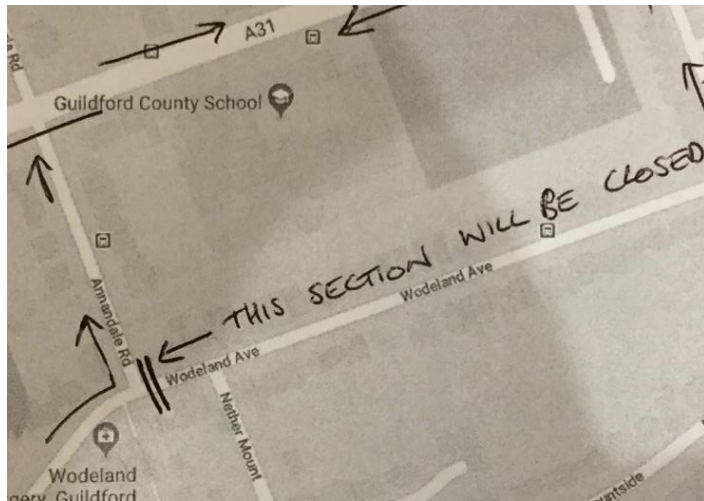 A31
Guildford County School
THIS SECTION WILL BE CLOSED
Wodeland Ave
Annandale Rd
Wodeland Ave
Nether Mount
Wodeland
Guildford